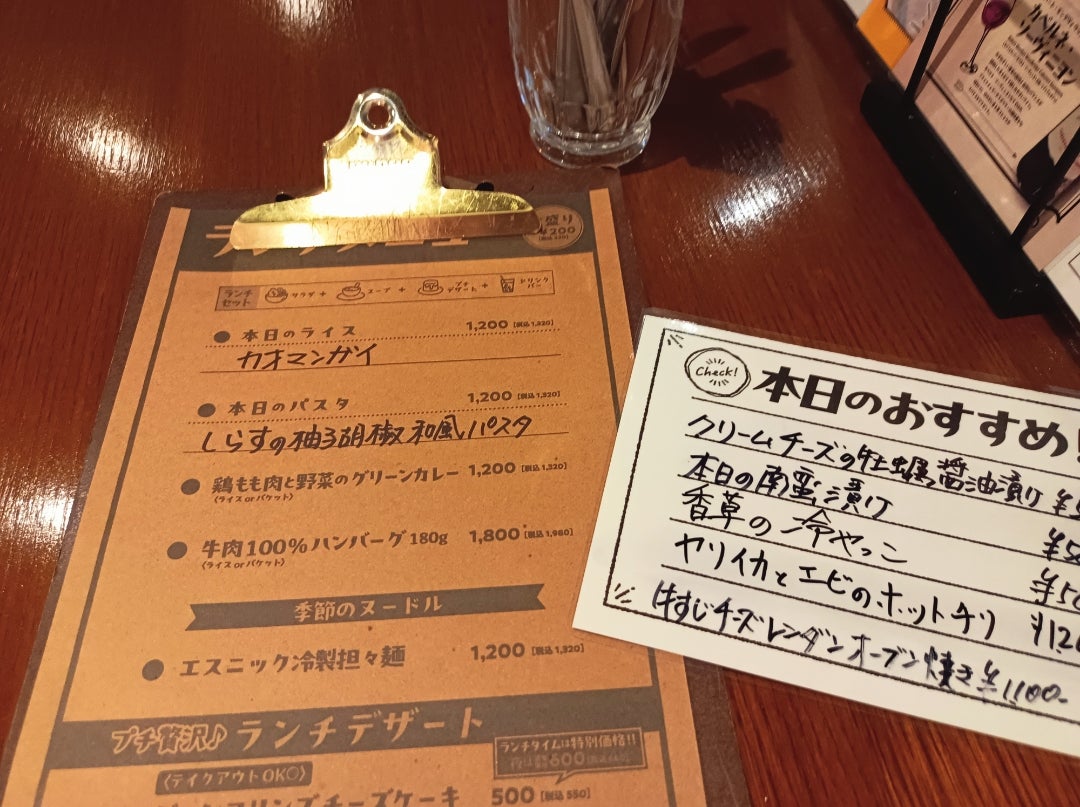 盛り
¥200
ランチ
セット
サラダ + スープ + プチデザート + ドリンクバー
● 本日のライス 1,200 [税込 1,320]
カオマンガイ
● 本日のパスタ 1,200 [税込 1,320]
しらすの柚子胡椒和風パスタ
● 鶏もも肉と野菜のグリーンカレー 1,200 [税込 1,320]
(ライス or バケット)
● 牛肉100%ハンバーグ 180g 1,800 [税込 1,980]
(ライス or バケット)
季節のヌードル
● エスニック冷製担々麺 1,200 [税込 1,320]
プチ贅沢♪ ランチデザート
ランチタイムは特別価格!!
600
〈テイクアウトOK〇〉
チーズケーキ 500 [税込 550]
Check!
本日のおすすめ
クリームチーズの牡蠣醤油漬け
本日の南蛮漬け
香草の冷やっこ
ヤリイカとエビのホットチリ
牛すじチーズレンダンオーブン焼き ¥1,100-
カベルネ・
ソーヴィニヨン